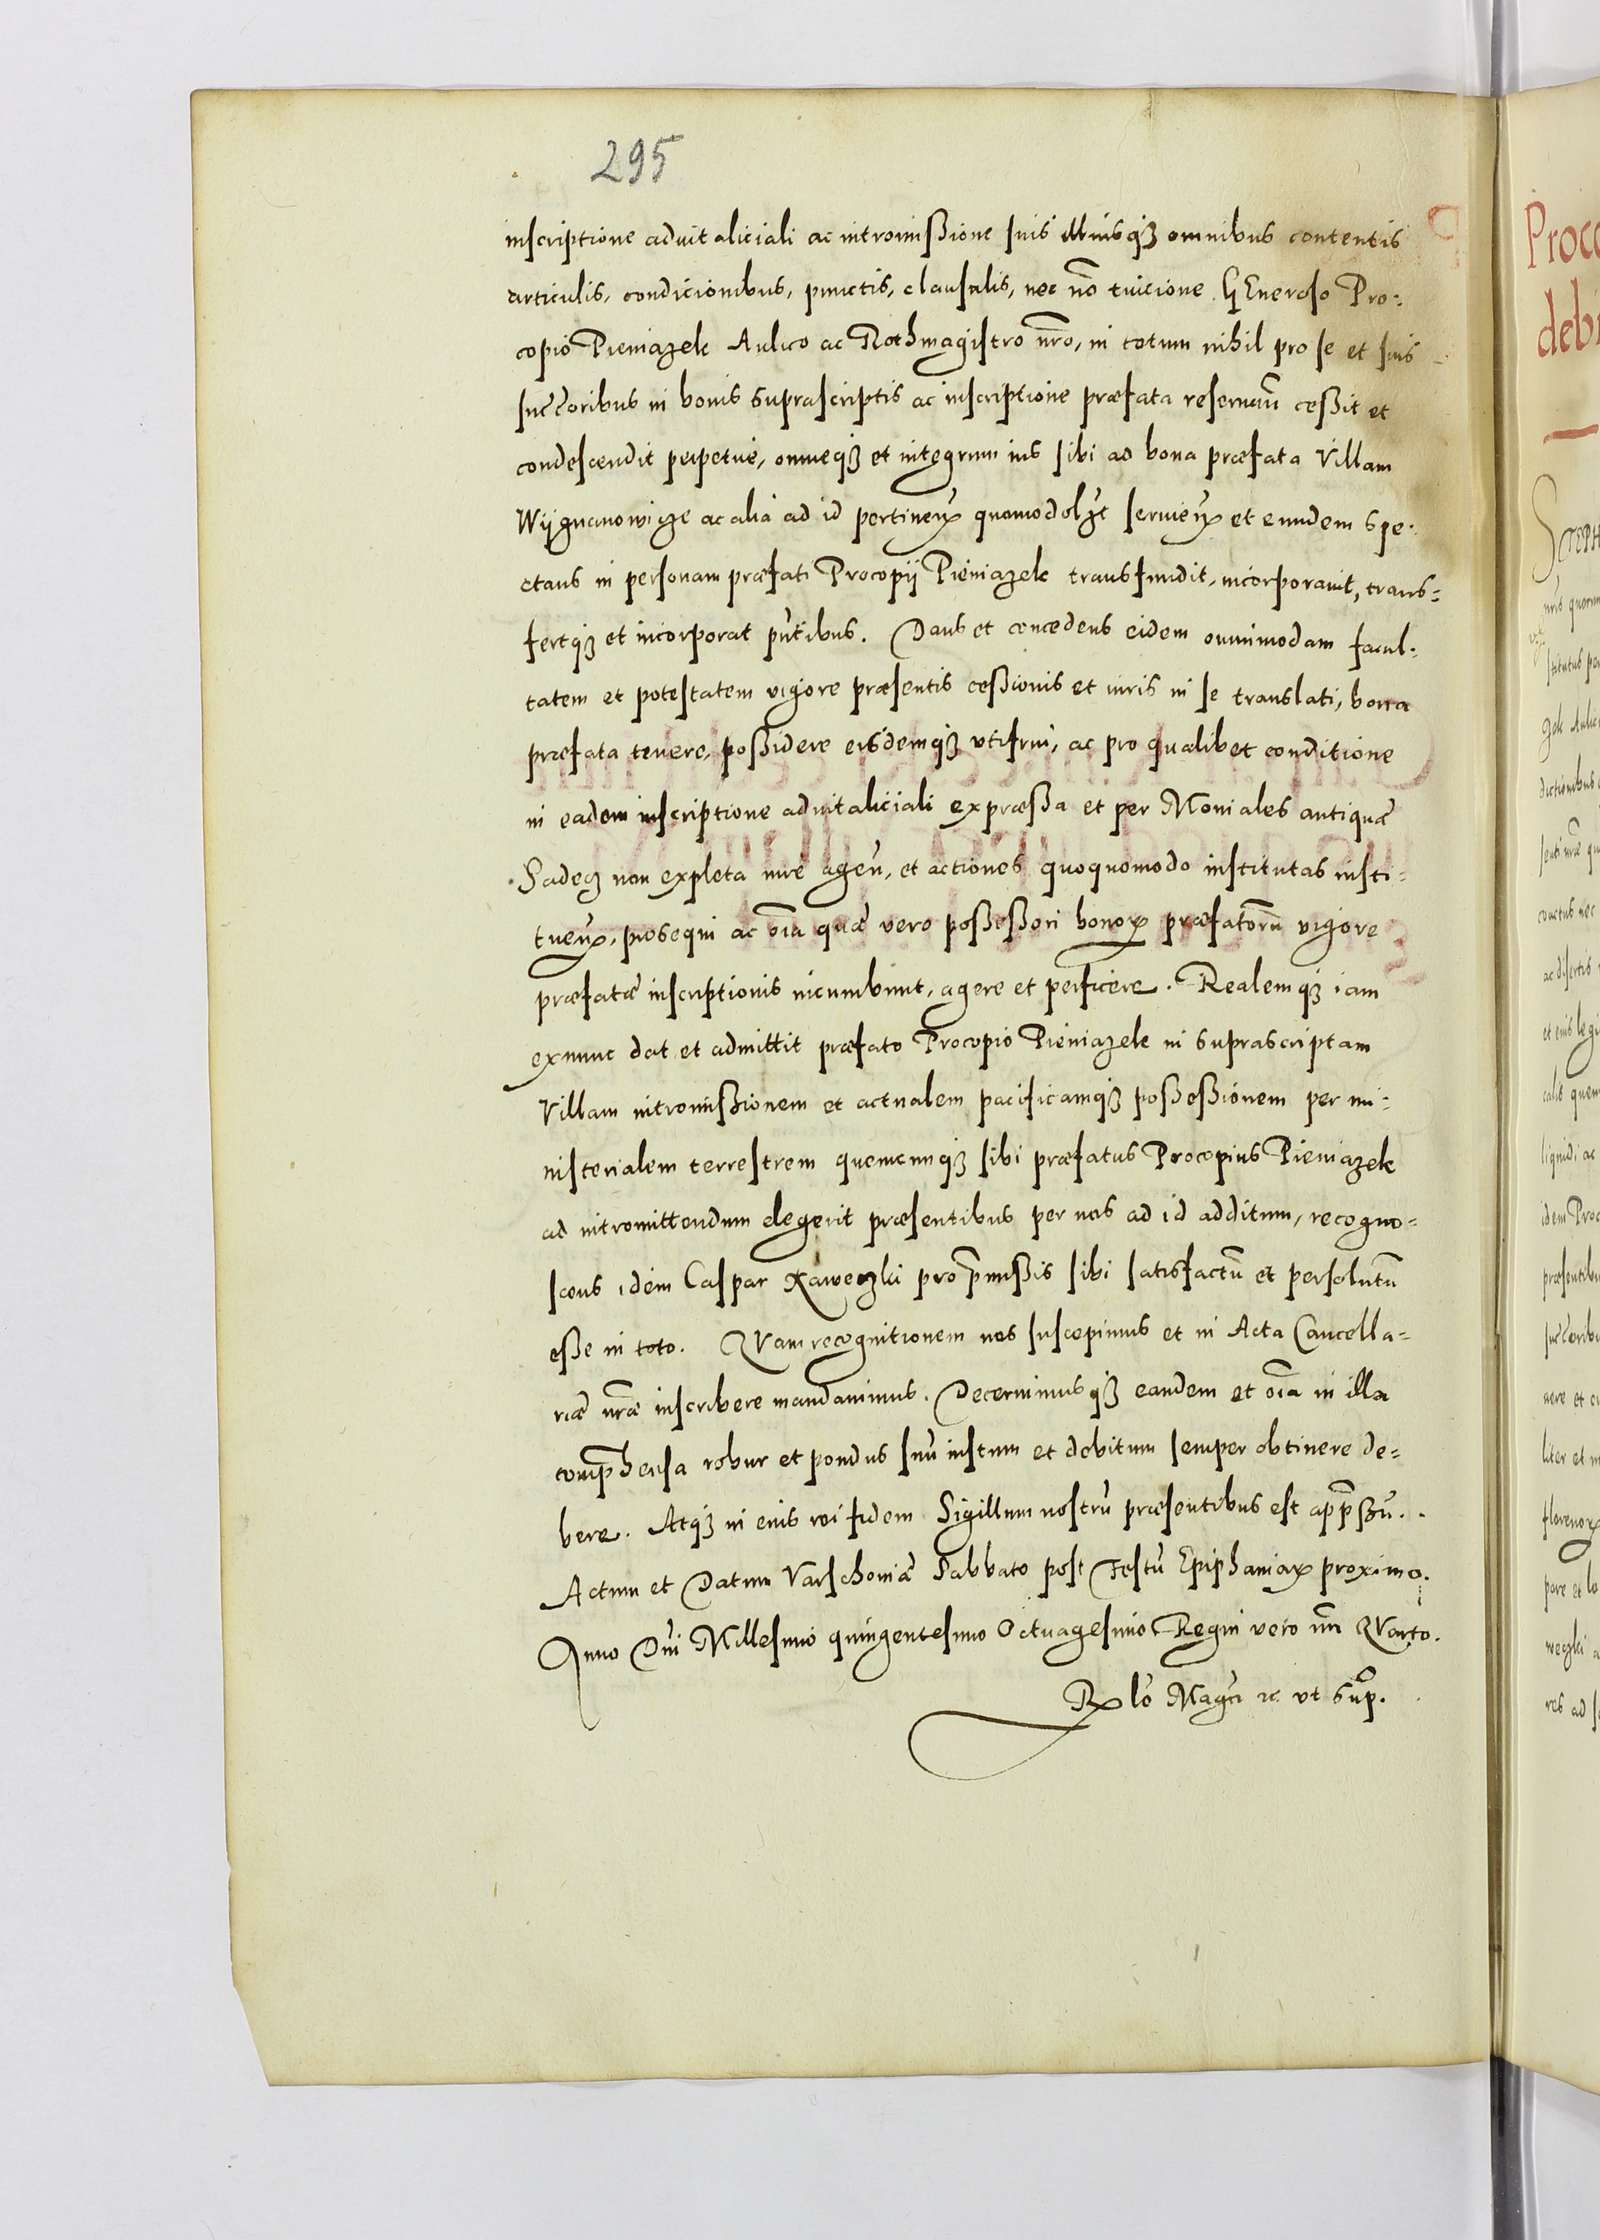 295
inscriptione aduitaliciali ac intromißione suis illiusqȝ omnibus contentis
articulis, condicionibus, punctis, clausulis, nec nõ tuicione GEneroso Pro-
copio Pieniazek Aulico ac Rothmagistro nr̃o, in totum nihil pro se et suis
succ̃oribus in bonis suprascriptis ac inscriptione præfata reseruan̄ ceßit et
condescendit perpetue, omneqȝ et integrum ius sibi ad bona præfata Villam
Wijgnanowicze ac alia ad id pertineꝝ quomodolȝt serueꝝ et eundem spe-
ctans in personam præfati Procopij Pieniazek transfundit, incorporauit, trans-
fertqȝ et incorporat pñtibus. Dans et concedens eidem omnimodam facul-
tatem et potestatem vigore præsentis ceßionis et iuris in se translati, bona
præfata tenere, poßidere eisdemqȝ vtifrui, ac pro qualibet conditione
in eadem inscriptione aduitaliciali expræßa et per Moniales antiquæ
Sadecȝ non expleta iure ageñ, et actiones quoquomodo institutas insti-
tueꝝ, prosequi ac õia quæ vero poßeßori bonoꝝ præfatorũ vigore
præfatæ inscriptionis incumbunt, agere et perficere. Realemqȝ iam
exnunc dat et admittit præfato Procopio Pieniazek in suprascriptam
Villam intromißionem et actualem pacificamqȝ poßeßionem per mi-
nisterialem terrestrem quemcunqȝ sibi præfatus Procopius Pieniazek
ad intromittendum elegerit præsentibus per nos ad id additum, recogno-
scens idem Caspar Raweczki pro p̃mißis sibi satisfactũ et persolutũ
eße in toto. QVam recognitionem nos suscepimus et in Acta Cancella-
riæ nr̃æ inscribere mandauimus. Decernimusqȝ eandem et õia in illa
comp̃hensa robur et pondus suũ iustum et debitum semper obtinere de-
bere. Atqȝ in eius rei fidem Sigillum nostrũ præsentibus est app̃ßũ.
Actum et Datum Varschouiæ Sabbato post Festũ Epiphaniaꝝ proximo.
Anno Dñi Millesimo quingentesimo Octuagesimo Regni vero nr̃i QVarto.
Rꝝ lõ Magci ꝛc vt sup.
Proco
debi